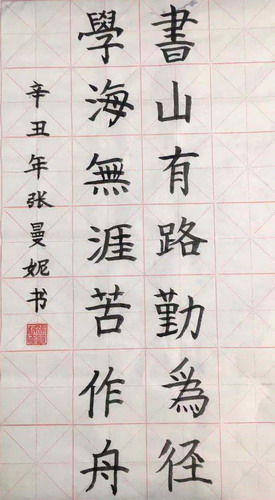 書山有路勤為径
學海無涯苦作舟
辛丑年张曼妮书